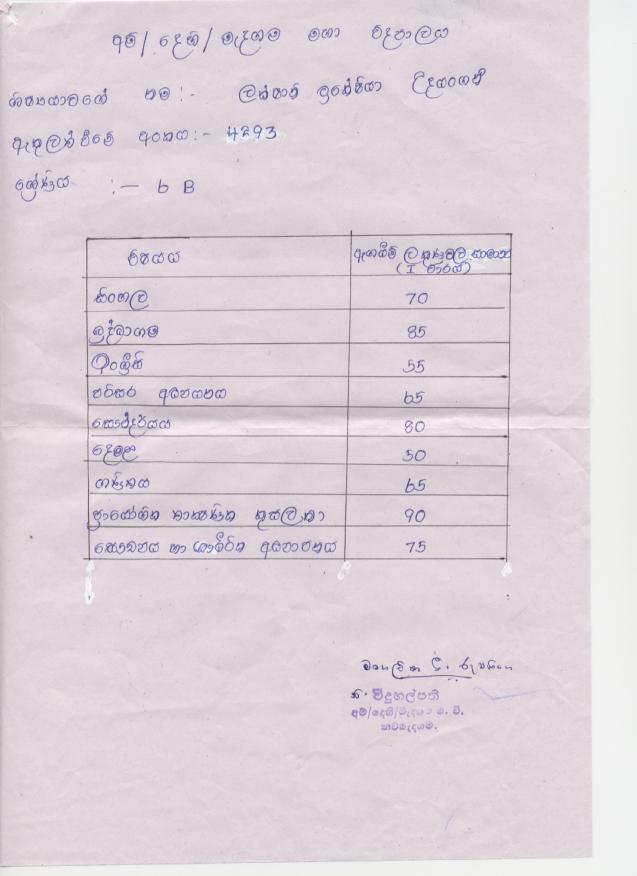 අම්/දෙහි/මැදගම මහා විද්‍යාලය
ශිෂ්‍යයාවගේ නම :- ලක්ෂානි උදයංගනී
ඇතුලත්වීමේ අංකය :- 4293
ශ්‍රේණිය :- 6 B
විෂයය ඇගයීම් ලකුණුවල සාමාන්‍ය
(I වාරය)
සිංහල 70
බුද්ධාගම 85
ඉංග්‍රීසි 55
පරිසර අධ්‍යයනය 65
සෞන්දර්යය 80
දෙමළ 50
ගණිතය 65
ප්‍රායෝගික තාක්ෂණික කුසලතා 90
සෞඛ්‍යය හා ශාරීරික අධ්‍යාපනය 75
නි. විදුහල්පති
අම්/දෙහි/මැදගම ම. වි.
නවමැදගම.